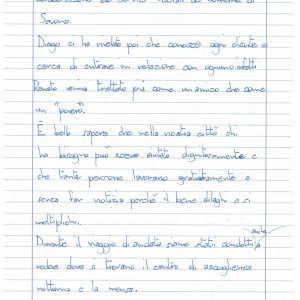 collaborazione dei Servizi Sociali del Comune di
Savona.
Diego ci ha riferito poi che conosce ogni cliente e
cerca di entrare in relazione con ognuno: infatti
Renato venne trattato più come un amico che come
un "povero".
È bello sapere che nella nostra città chi
ha bisogno può essere aiutato dignitosamente e
che tante persone lavorano gratuitamente e
senza far notizia perché il bene dilaghi e si
moltiplichi.
Durante il viaggio di andata siamo stati condotti anche a
vedere dove si trovano il centro di accoglienza
notturna e la mensa.